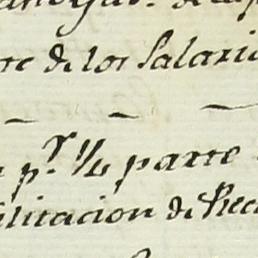 re de los Salari
p.r 1/4 parte
ilitacion de Rec